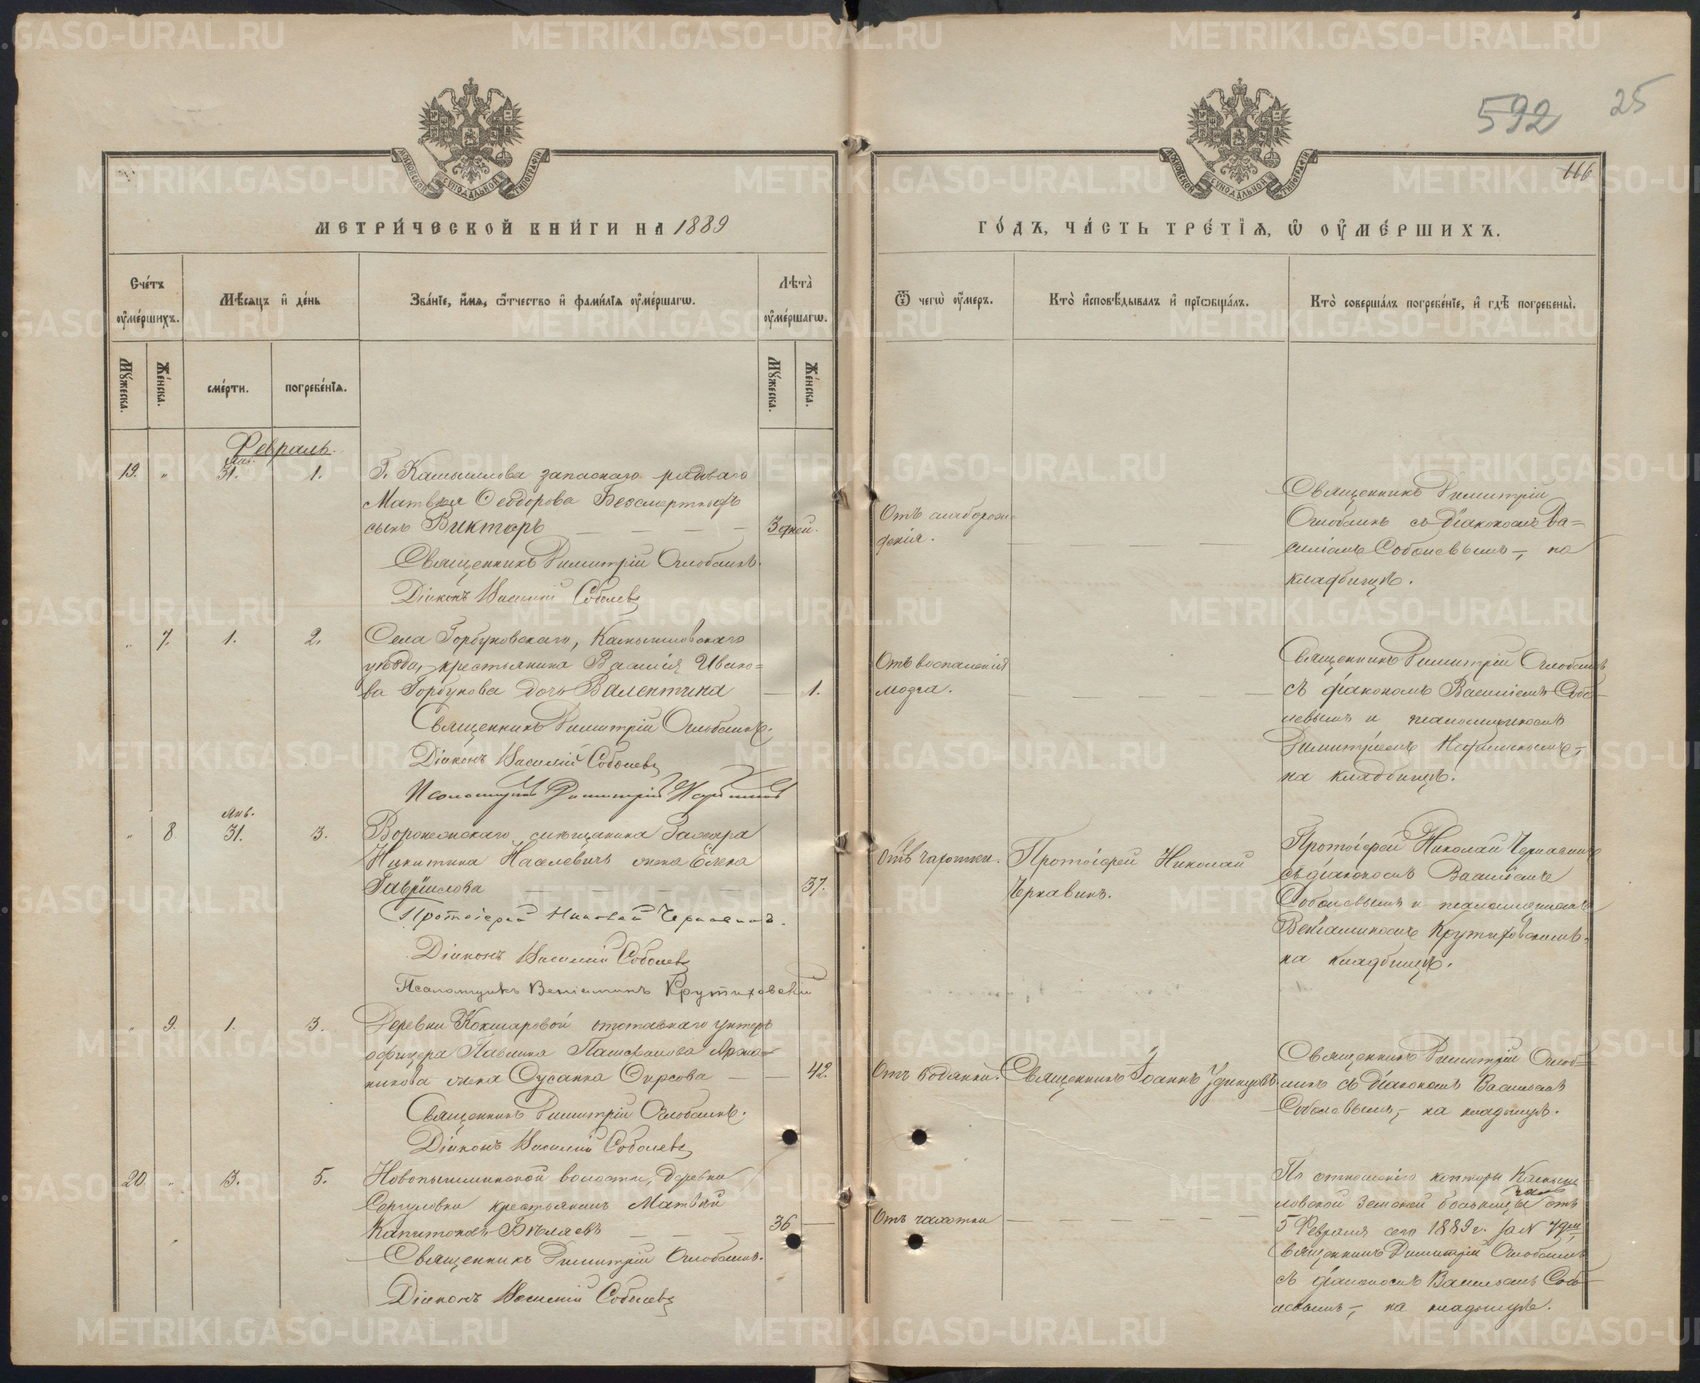 592 25
116
МОСКОВСКОЙ СѴНОДАЛЬНОЙ ТИПОГРАФІИ
МЕТРИ́ЧЕСКОЙ КНИ́ГИ НА 1889
ГО́ДЪ, ЧА́СТЬ ТРЕ́ТІЯ, Ѡ҆ ОУ҆МЕ́РШИХЪ.
Сче́тъ оу҆ме́ршихъ.
Мѣ́сяцъ и҆ де́нь
Зва́нїе, и҆́мя, ѻ҆́тчество и҆ фами́лїя оу҆ме́ршагѡ.
Лѣта̀ оу҆ме́ршагѡ.
Ѿ чегѡ̀ оу҆́меръ.
Кто̀ и҆сповѣ́дывалъ и҆ прїѡбща́лъ.
Кто̀ соверша́лъ погребе́нїе, и҆ гдѣ̀ погребены̀.
Му́жеска.
Же́нска.
сме́рти.
погребе́нїя.
Му́жеска.
Же́нска.
Февраль.
19. " Янв. 31. 1.
Г. Камышлова запаснаго рядоваго
Матвѣя Ѳеодорова Безсмертныхъ
сынъ Викторъ — 3 дней.
Священникъ Димитрій Оглоблинъ.
Діаконъ Василій Соболевъ
Отъ слаборож-
денія.
Священникъ Димитрій
Оглоблинъ съ діакономъ Ва-
силіемъ Соболевымъ, на
кладбищѣ.
" 7. 1. 2.
Села Горбуновскаго, Камышловскаго
уѣзда, крестьянина Василія Ивано-
ва Горбунова дочь Валентина — 1.
Священникъ Димитрій Оглоблинъ.
Діаконъ Василій Соболевъ
Псаломщикъ Димитрій
Отъ воспаленія
мозга.
Священникъ Димитрій Оглоблинъ
съ діакономъ Василіемъ Собо-
левымъ и псаломщикомъ
Димитріемъ
на кладбищѣ.
" 8 Янв. 31. 3.
Воронежскаго мѣщанина Захара
Никитина жена Елена
Гавріилова — 37.
Протоіерей Николай Чернавинъ.
Діаконъ Василій Соболевъ
Псаломщикъ Веніаминъ Крутиховскій
Отъ чахотки.
Протоіерей Николай
Чернавинъ.
Протоіерей Николай Чернавинъ
съ діакономъ Василіемъ
Соболевымъ и псаломщикомъ
Веніаминомъ Крутиховскимъ,
на кладбищѣ.
" 9. 1. 3.
Деревни Кокшаровой отставнаго унтеръ
офицера Павлина
жена Сусанна Фирсова — 42.
Священникъ Димитрій Оглоблинъ.
Діаконъ Василій Соболевъ
Отъ водянки.
Священникъ Іоаннъ Удинцовъ
Священникъ Димитрій Оглоб-
линъ съ діакономъ Василіемъ
Соболевымъ, на кладбищѣ.
20 " 3. 5.
Новопышминской волости, деревни
Сергуловки крестьянинъ Матвѣй
Капитоновъ Бѣляевъ — 36 —
Священникъ Димитрій Оглоблинъ.
Діаконъ Василій Соболевъ
Отъ чахотки
По отношенію конторы Камыш-
ловской Земской больницы отъ
5 Февраля сего 1889 г. за №
Священникъ Димитрій Оглоблинъ
съ діакономъ Василіемъ Собо-
левымъ, на кладбищѣ.
METRIKI.GASO-URAL.RU